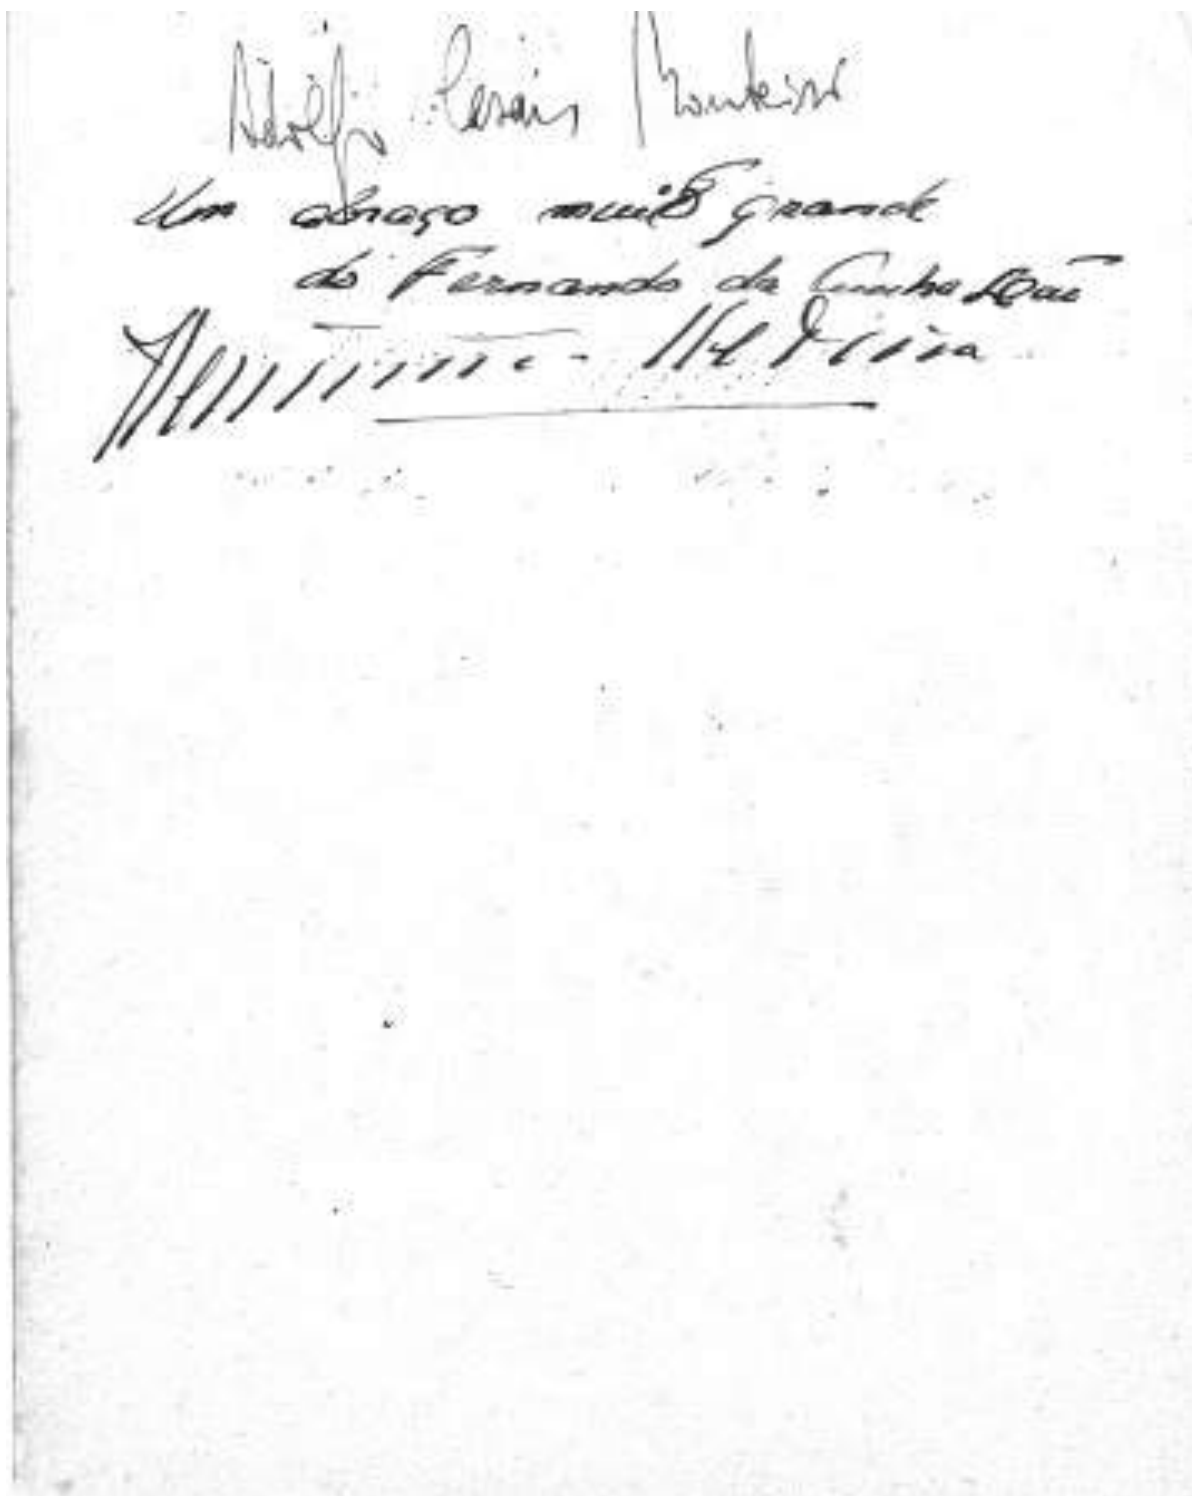 Adolfo Casais Monteiro
Um abraço muito grande
do Fernando da Cunha Leão